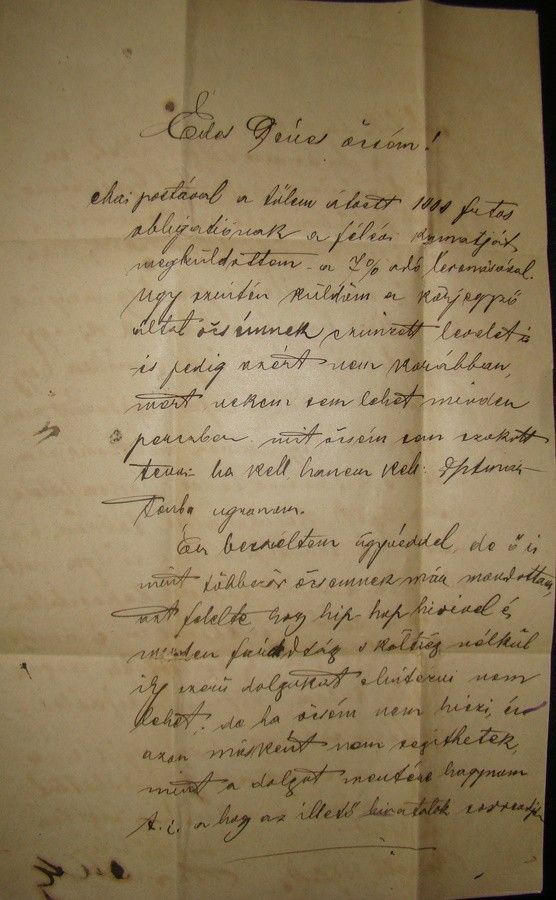 Édes öcsém!
mai postával a tőlem átvett 1000 frtos
obligatiónak a félévi kamatját
megküldöttem a 7% adó levonásával.
Ugy szintén küldöm a közjegyző
által öcsémnek czimzett levelet is
is pedig azért nem korábban,
mert nekem sem lehet minden
perczben mit öcsém szokott
tenni ha kell, hanem kell
ugranom.
Én beszéltem ügyvéddel, de ő is
mint többször öcsémnek már mondottam,
azt felelte hogy hip hop hirével és
minden fáradtság s költség nélkül
ily szerü dolgokat elintézni nem
lehet; de ha öcsém nem hiszi, én
azon másként nem segithetek,
mint a dolgot mentére hagynom
t. i. a hogy az illető hivatalok